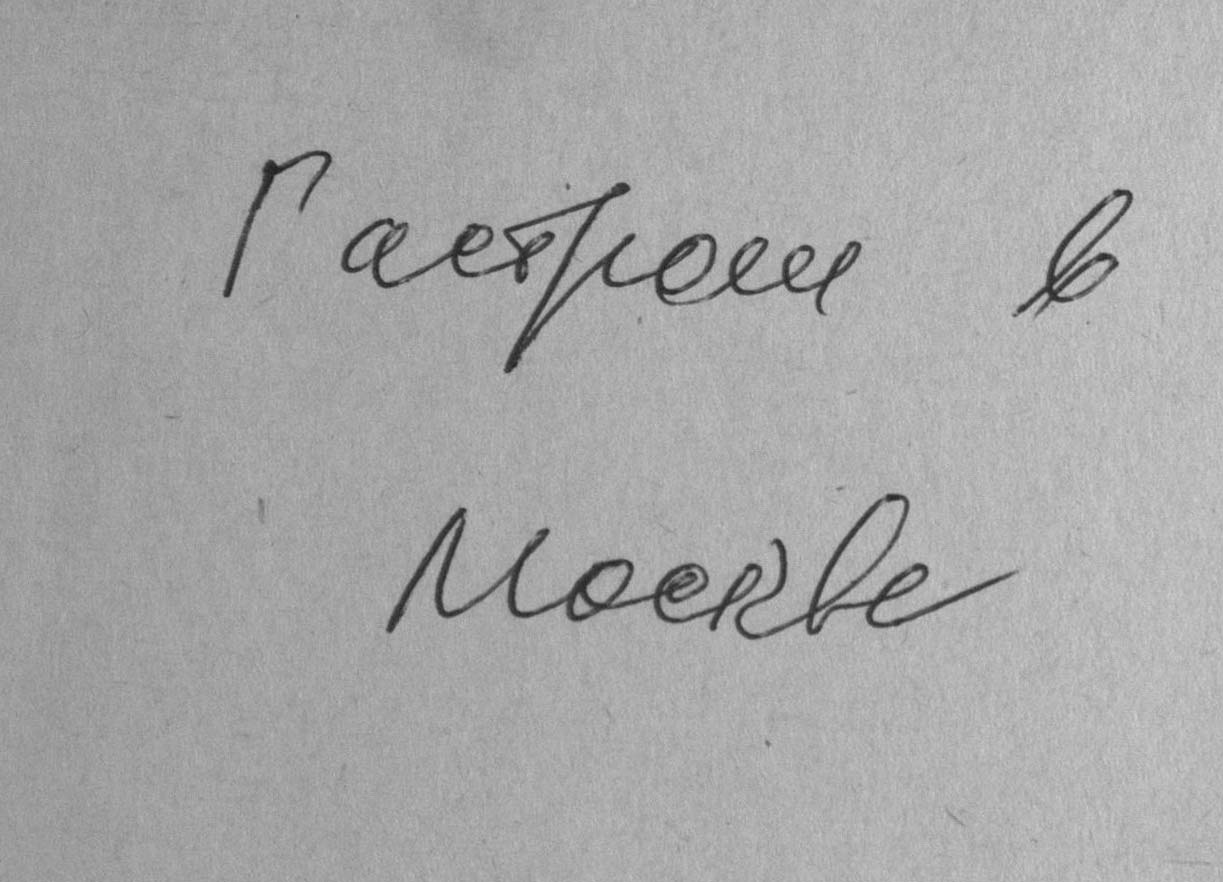 Гастроли в
Москве